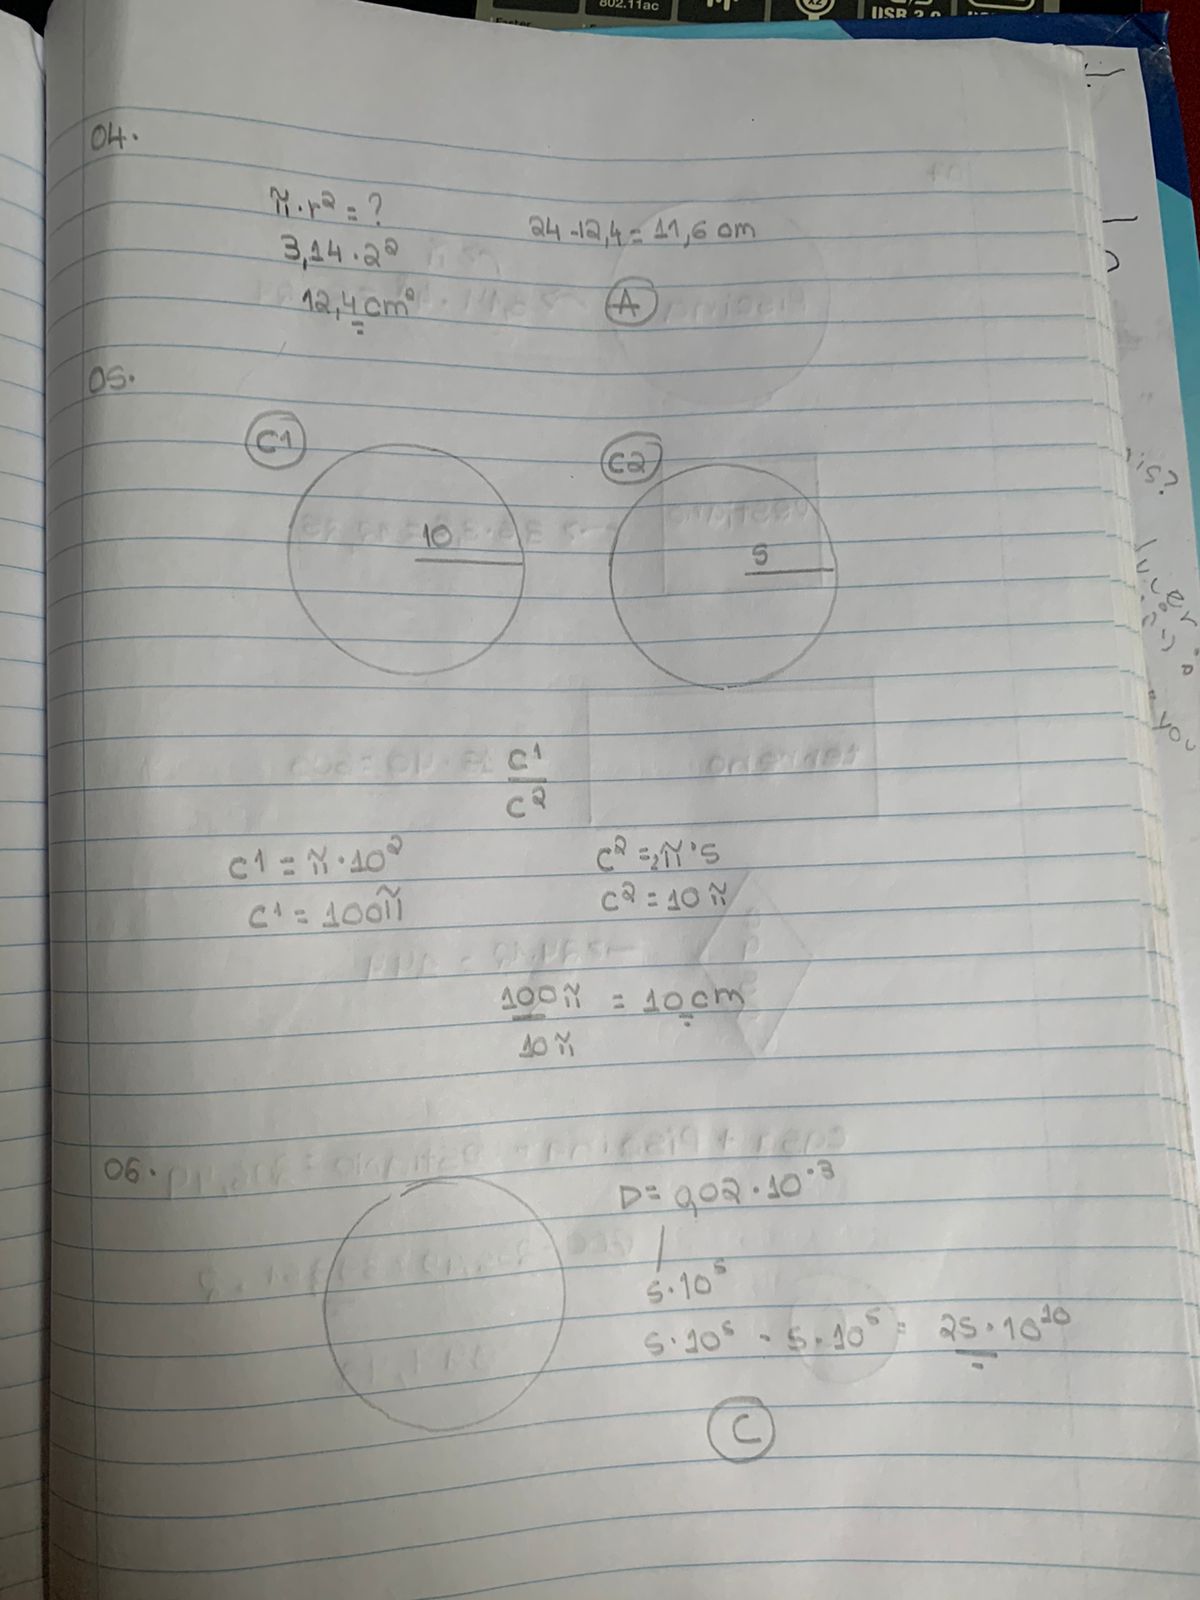 802.11ac
USB 2.0
04.
π.r² = ?
3,14.2²
12,4cm²
24-12,4=11,6 cm
A
05.
C1
10
C2
5
C1
C2
C1 = π.10²
C1 = 100π
C2 = 2π.5
C2 = 10π
100π = 10cm
10π
06.
D = 0,02.10⁻³
5.10⁵
5.10⁵ . 5.10⁵ = 25.10¹⁰
C